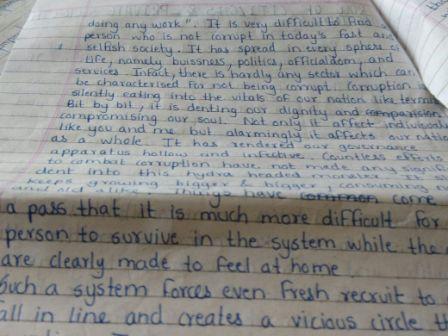 doing any work". It is very difficult to find a
person who is not corrupt in today's fast and
selfish society. It has spread in every sphere of
life, namely buissness, politics, officialdom, and
services. Infact, there is hardly any sector which can
be characterised for not being corrupt. Corruption is
silently eating into the vitals of our nation like termite
Bit by bit, it is denting our dignity and comparision
compromising our soul. Not only it affect individual
like you and me but alarmingly it affects our nation
as a whole. It has rendered our governance
apparatus hollow and infective. Countless efforts
to combat corruption have not made any signif
dent into this hydra headed
keeps growing bigger & bigger, consuming
Things have common come
a pass that it is much more difficult for
person to survive in the system while the
are clearly made to feel at home.
Such a system forces even fresh recruit to
fall in line and creates a vicious circle